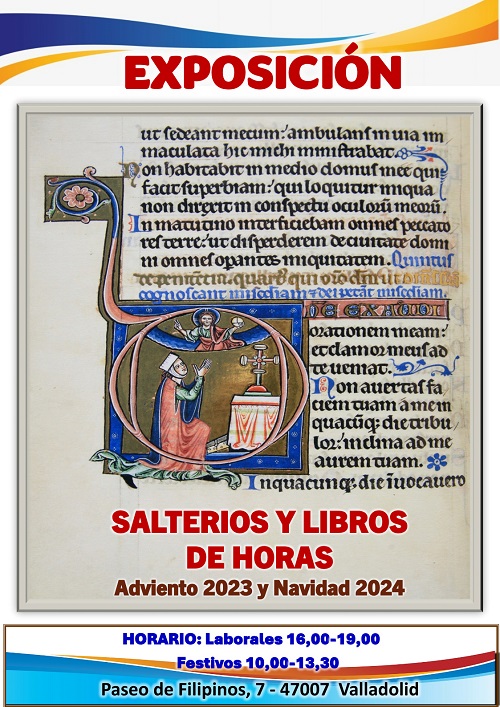 EXPOSICIÓN
ut sedeant mecum: ambulans in uia im
maculata hic michi ministrabat.
Non habitabit in medio domus mee qui
facit superbiam: qui loquitur iniqua
non direxit in conspectu oculorum meorū.
In matutino interficiebam omnes peccato
res terre: ut disperderem de ciuitate domi
ni omnes operantes iniquitatem. Quintus
cognoscant misc̄diam
DNE EXAUDI
orationem meam:
et clamor meus ad
te ueniat.
Non auertas fa
ciem tuam a me in
quacūq; die tribu
lor: inclina ad me
aurem tuam.
In quacunq; die īuocauero
SALTERIOS Y LIBROS
DE HORAS
Adviento 2023 y Navidad 2024
HORARIO: Laborales 16,00-19,00
Festivos 10,00-13,30
Paseo de Filipinos, 7 - 47007 Valladolid